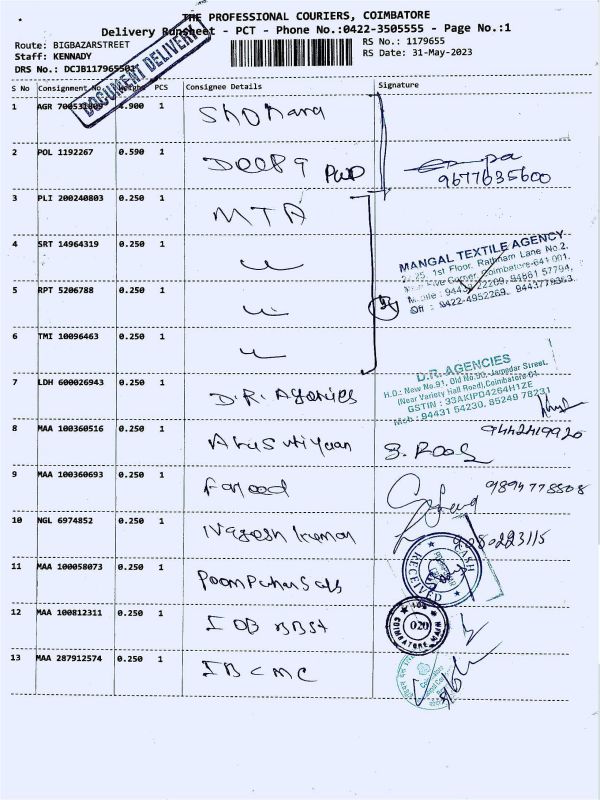 THE PROFESSIONAL COURIERS, COIMBATORE
Delivery Runsheet - PCT - Phone No.:0422-3505555 - Page No.:1
Route: BIGBAZARSTREET
RS No.: 1179655
Staff: KENNADY
RS Date: 31-May-2023
DRS No.: DCJB1179655
DOCUMENT DELIVERY
S No Consignment No. PCS Consignee Details Signature
1 AGR 4.900 1 Shobana
2 POL 1192267 0.590 1 Deepa PWD
9677635600
3 PLI 200240803 0.250 1 MTA
4 SRT 14964319 0.250 1
MANGAL TEXTILE AGENCY
1st Floor, Rathnam Lane No.2,
Five Corner, Coimbatore-641 001.
Off : 0422-4952269,
5 RPT 5206788 0.250 1
6 TMI 10096463 0.250 1
7 LDH 600026943 0.250 1 D.R. Agencies
D.R. AGENCIES
H.O.: New No.91, Old No.90, Jamedar Street,
(Near Variety Hall Road), Coimbatore-01.
GSTIN : 33AKIPD4264H1ZE
Mob : 94431 54230, 85249 78231
8 MAA 100360516 0.250 1
9442419920
9 MAA 100360693 0.250 1 Fareed
9894778808
10 NGL 6974852 0.250 1 Nagesh Kumar
11 MAA 100058073 0.250 1
CASH
RECEIVED
12 MAA 100812311 0.250 1 IOB BBST
IOB
020
COIMBATORE MAIN
13 MAA 287912574 0.250 1 IB CMC